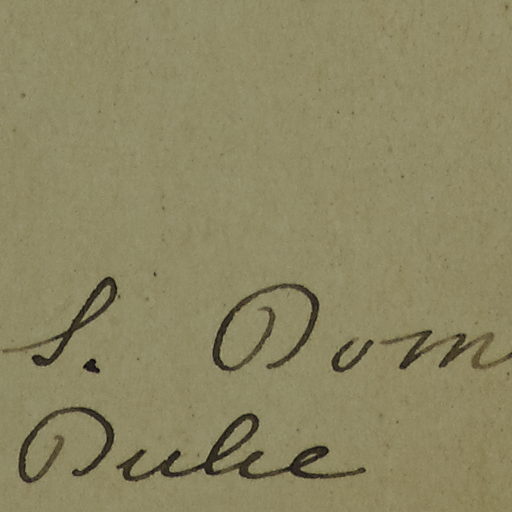 S. Dom
Duke